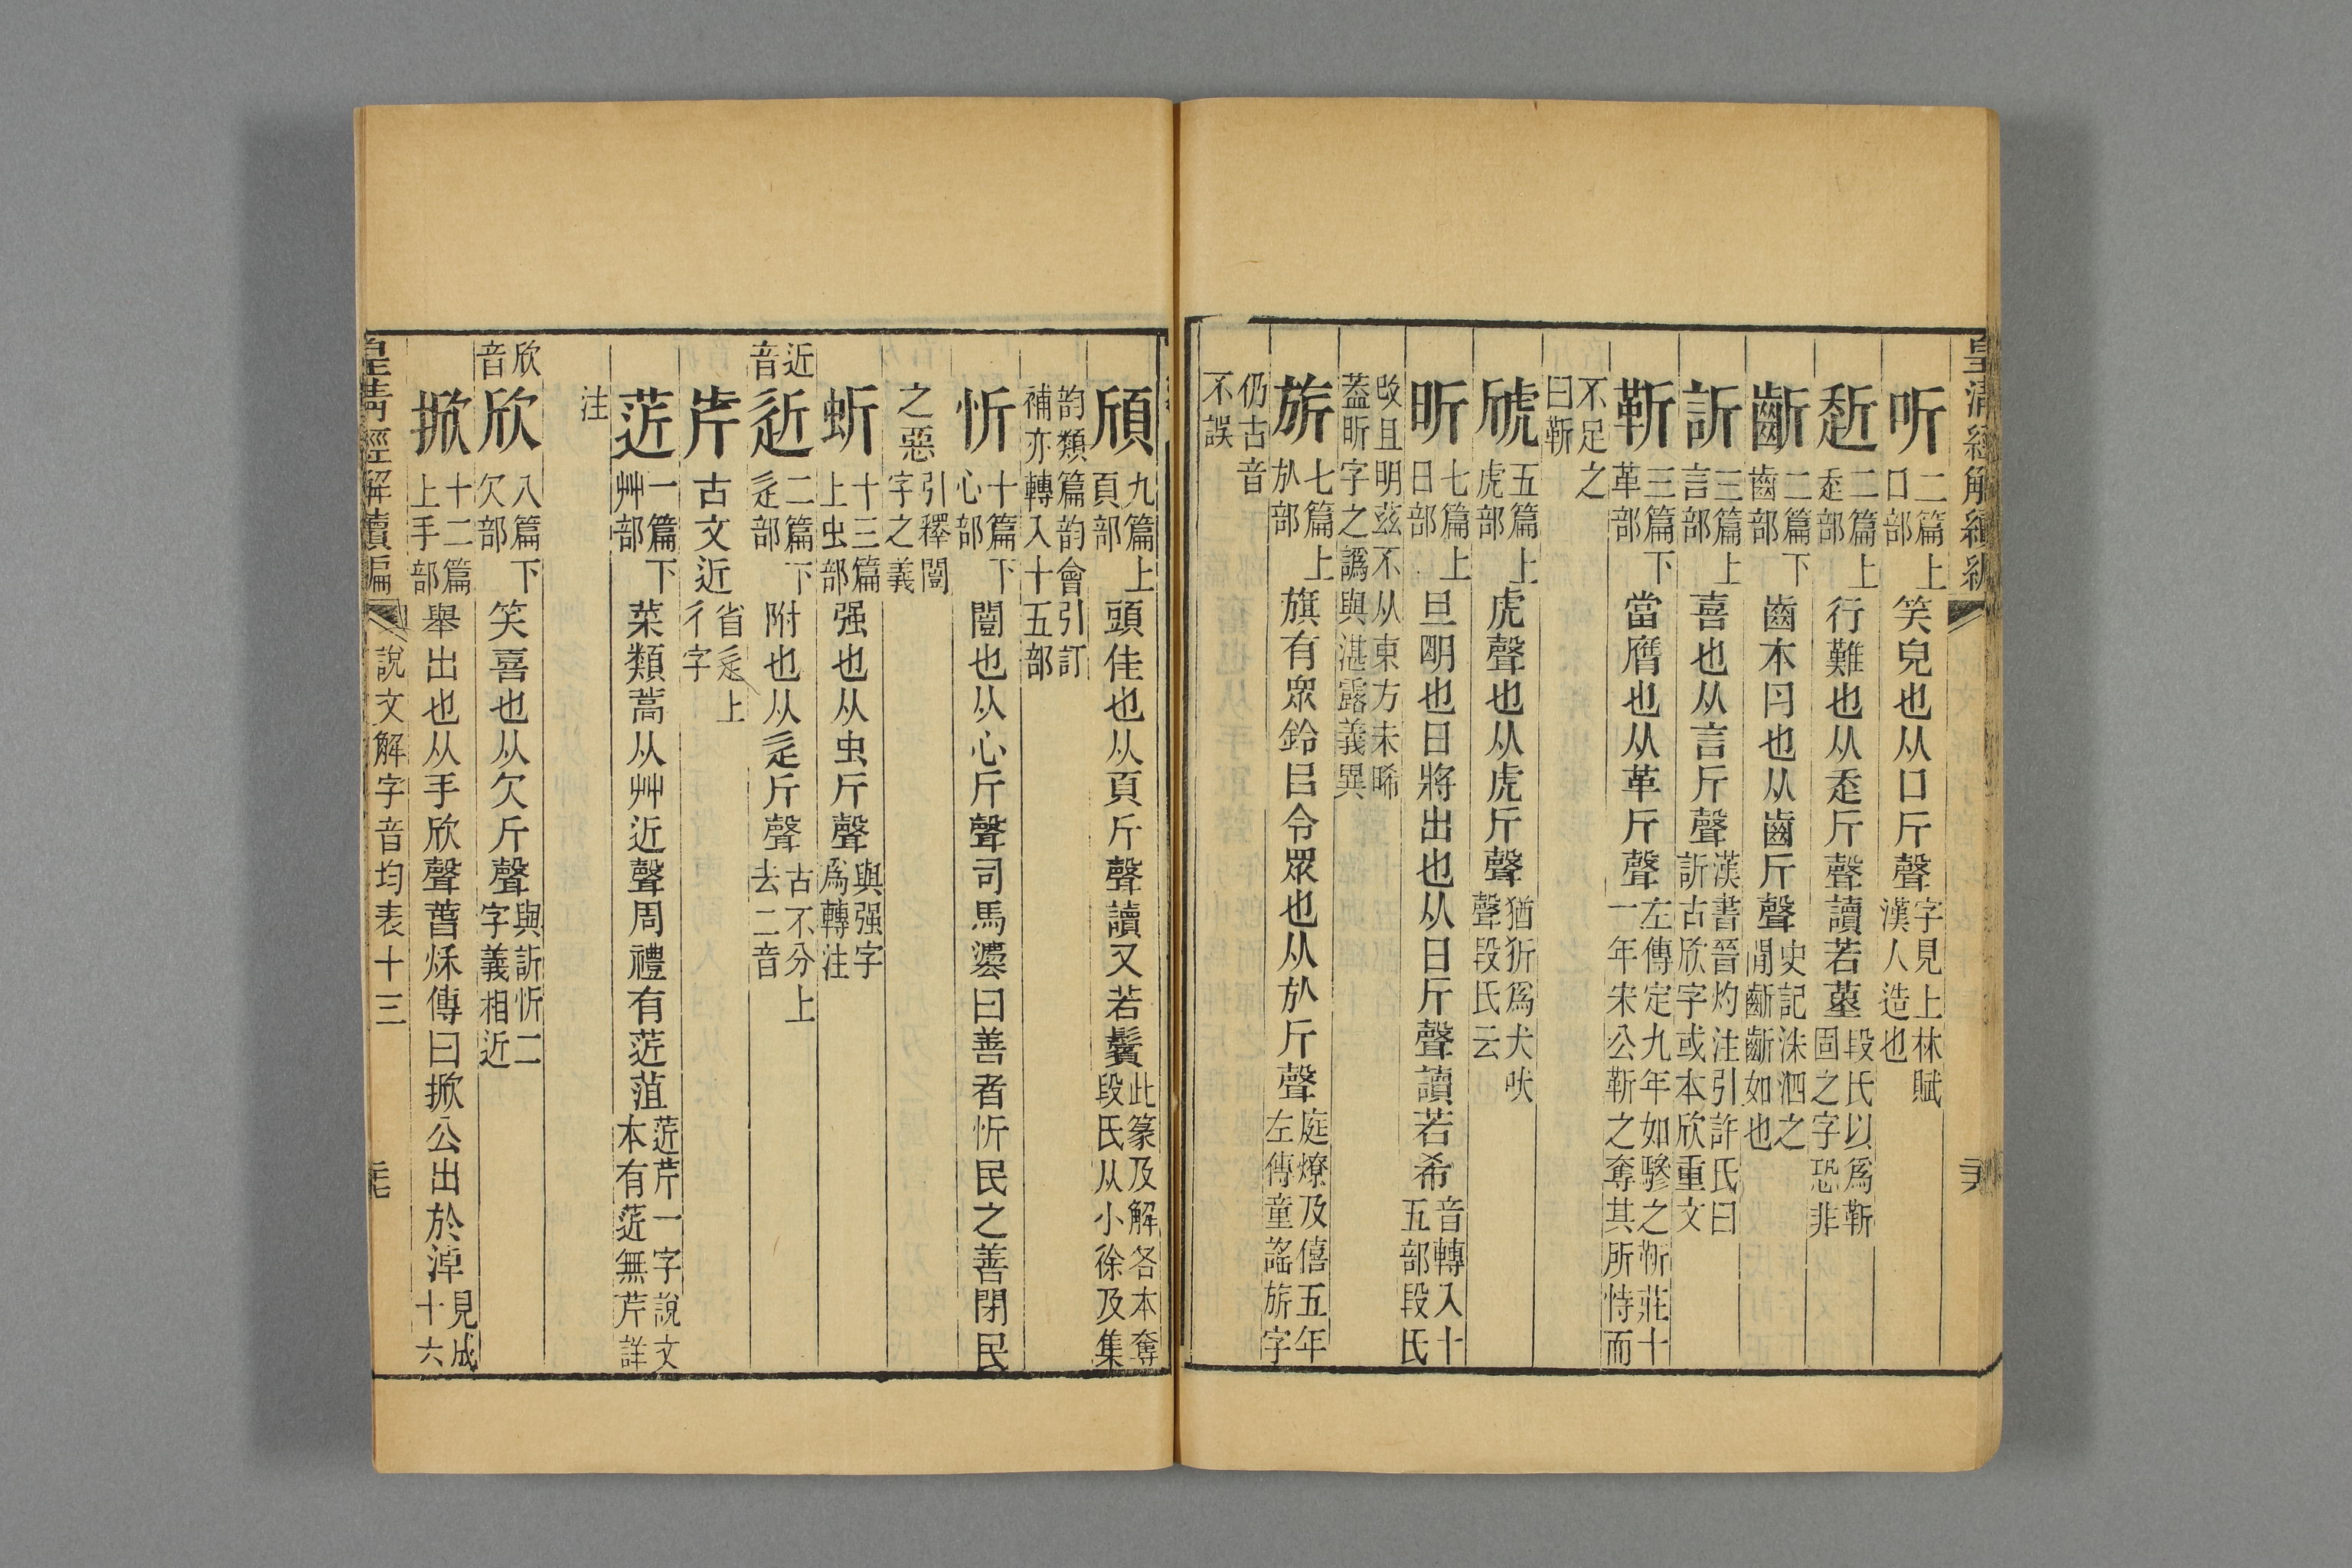 听二篇上口部笑皃也从口斤聲字見上林賦漢人造也
赾二篇上辵部行難也从辵斤聲讀若堇段氏以爲靳固之字恐非
齗二篇下齒部齒本肉也从齒斤聲史記洙泗之閒齗齗如也
訢三篇上言部喜也从言斤聲漢書晉灼注引許氏曰訢古欣字或本欣重文
靳三篇下革部當膺也从革斤聲左傳定九年如驂之靳莊十一年宋公靳之奪其所恃而
不足之曰靳
虓五篇上虎部虎聲也从虎斤聲猶狾爲犬吠聲段氏云
昕七篇上日部旦明也日將出也从日斤聲讀若希音轉入十五部段氏
攺且明茲不从東方未晞蓋昕字之譌與湛露義異
旂七篇上㫃部旗有衆鈴㠯令眾也从㫃斤聲庭燎及僖五年左傳童謠旂字
仍古音不誤
頎九篇上頁部頭佳也从頁斤聲讀又若鬢此篆及解各本奪段氏从小徐及集
韵類篇韵會引訂補亦轉入十五部
忻十篇下心部闓也从心斤聲司馬灋曰善者忻民之善閉民
之惡引釋闓字之義
蚚十三篇上虫部强也从虫斤聲與强字爲轉注
近音近二篇下辵部附也从辵斤聲古不分上去二音
岸古文近省辵上彳字
菦一篇下艸部菜類蒿从艸近聲周禮有菦菹菦芹一字說文本有菦無芹詳
注
欣音欣八篇下欠部笑喜也从欠斤聲與訢忻二字義相近
掀十二篇上手部舉出也从手欣聲萅秌傳曰掀公出於淖見成十六
皇清經解續編 說文解字音均表十三